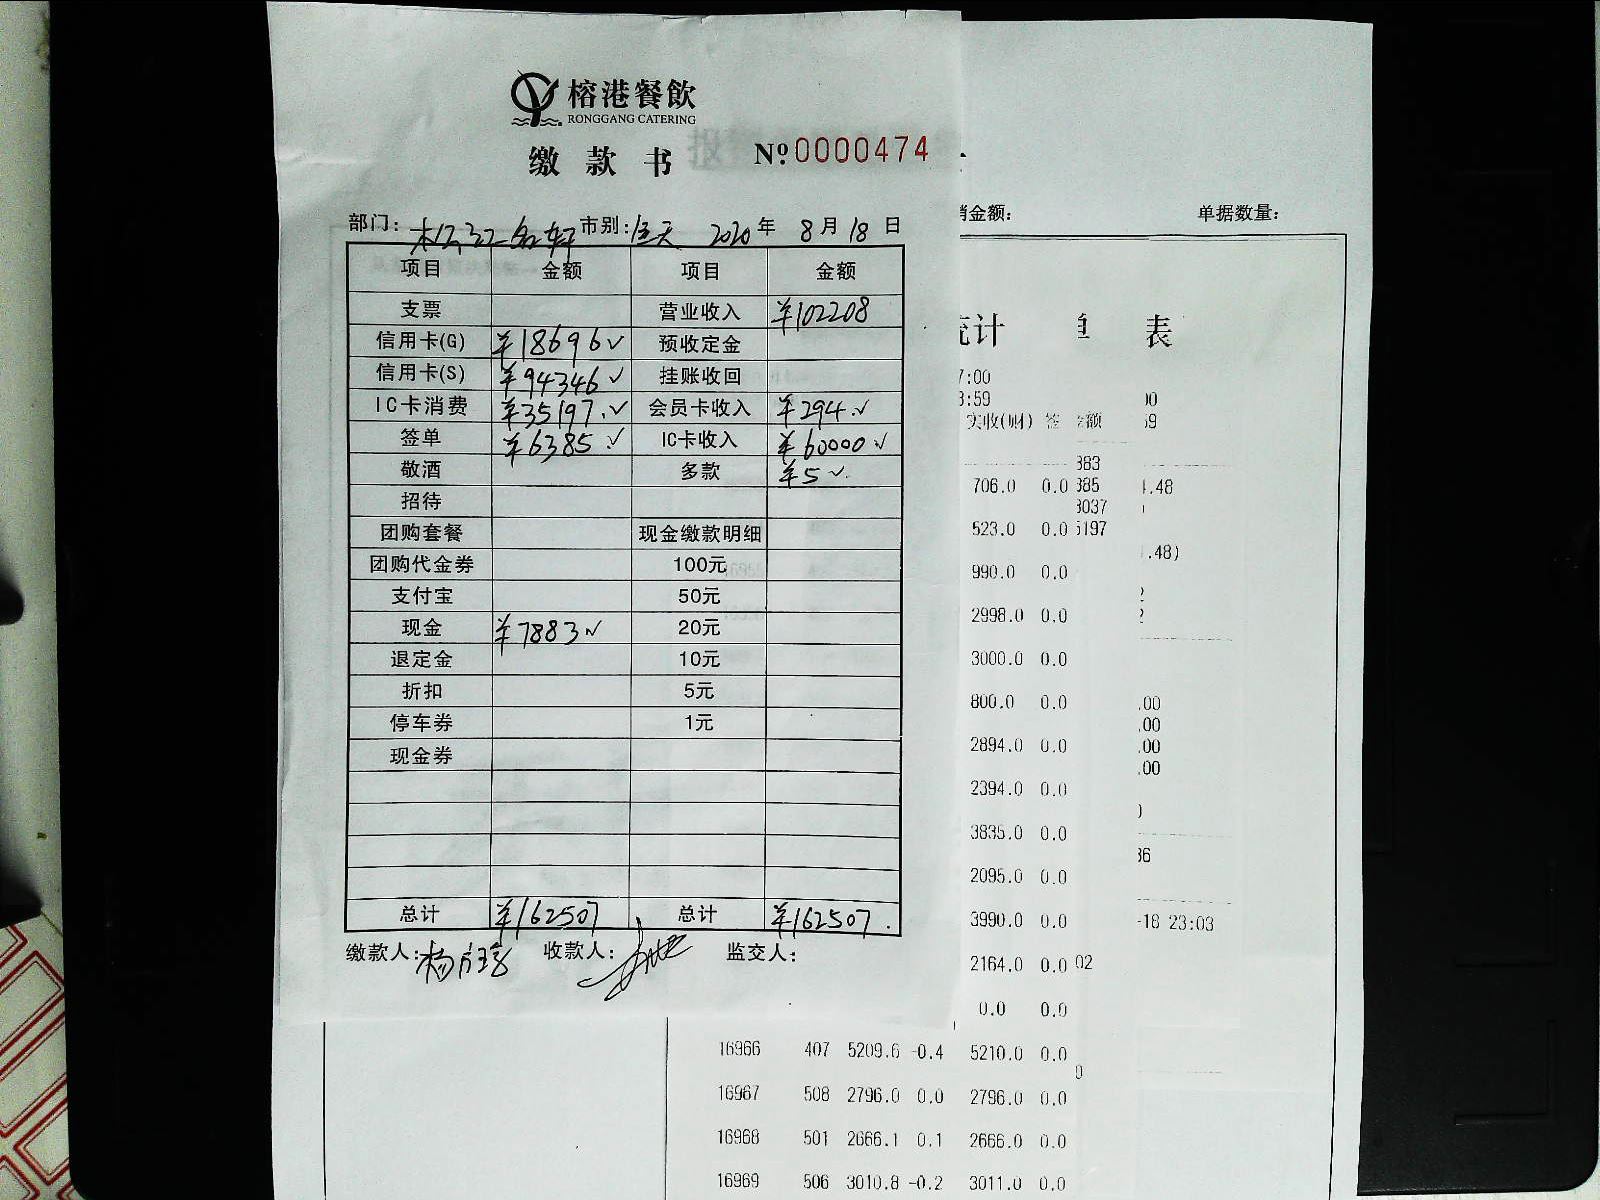 榕港餐飲
RONGGANG CATERING
缴款书 Nº 0000474
部门: 市别: 全天 2020年 8月 18日
项目 金额 项目 金额
支票 营业收入 ¥102208
信用卡(G) ¥18696✓ 预收定金
信用卡(S) ¥94346✓ 挂账收回
IC卡消费 ¥35197.✓ 会员卡收入 ¥294.✓
签单 ¥6385.✓ IC卡收入 ¥60000✓
敬酒 多款 ¥5✓.
招待
团购套餐 现金缴款明细
团购代金券 100元
支付宝 50元
现金 ¥7883✓ 20元
退定金 10元
折扣 5元
停车券 1元
现金券
总计 ¥162507 总计 ¥162507.
缴款人: 收款人: 监交人:
销金额: 单据数量:
统计 单 表
7:00
3:59 00
实收(财) 签 金额 59
383
706.0 0.0 385 1.48
3037
523.0 0.0 5197
.48)
990.0 0.0
2998.0 0.0
3000.0 0.0
800.0 0.0 .00
.00
2894.0 0.0 .00
.00
2394.0 0.0
3835.0 0.0
36
2095.0 0.0
3990.0 0.0 -18 23:03
2164.0 0.0 02
0.0 0.0
16966 407 5209.6 -0.4 5210.0 0.0
16967 508 2796.0 0.0 2796.0 0.0
16968 501 2666.1 0.1 2666.0 0.0
16969 506 3010.8 -0.2 3011.0 0.0